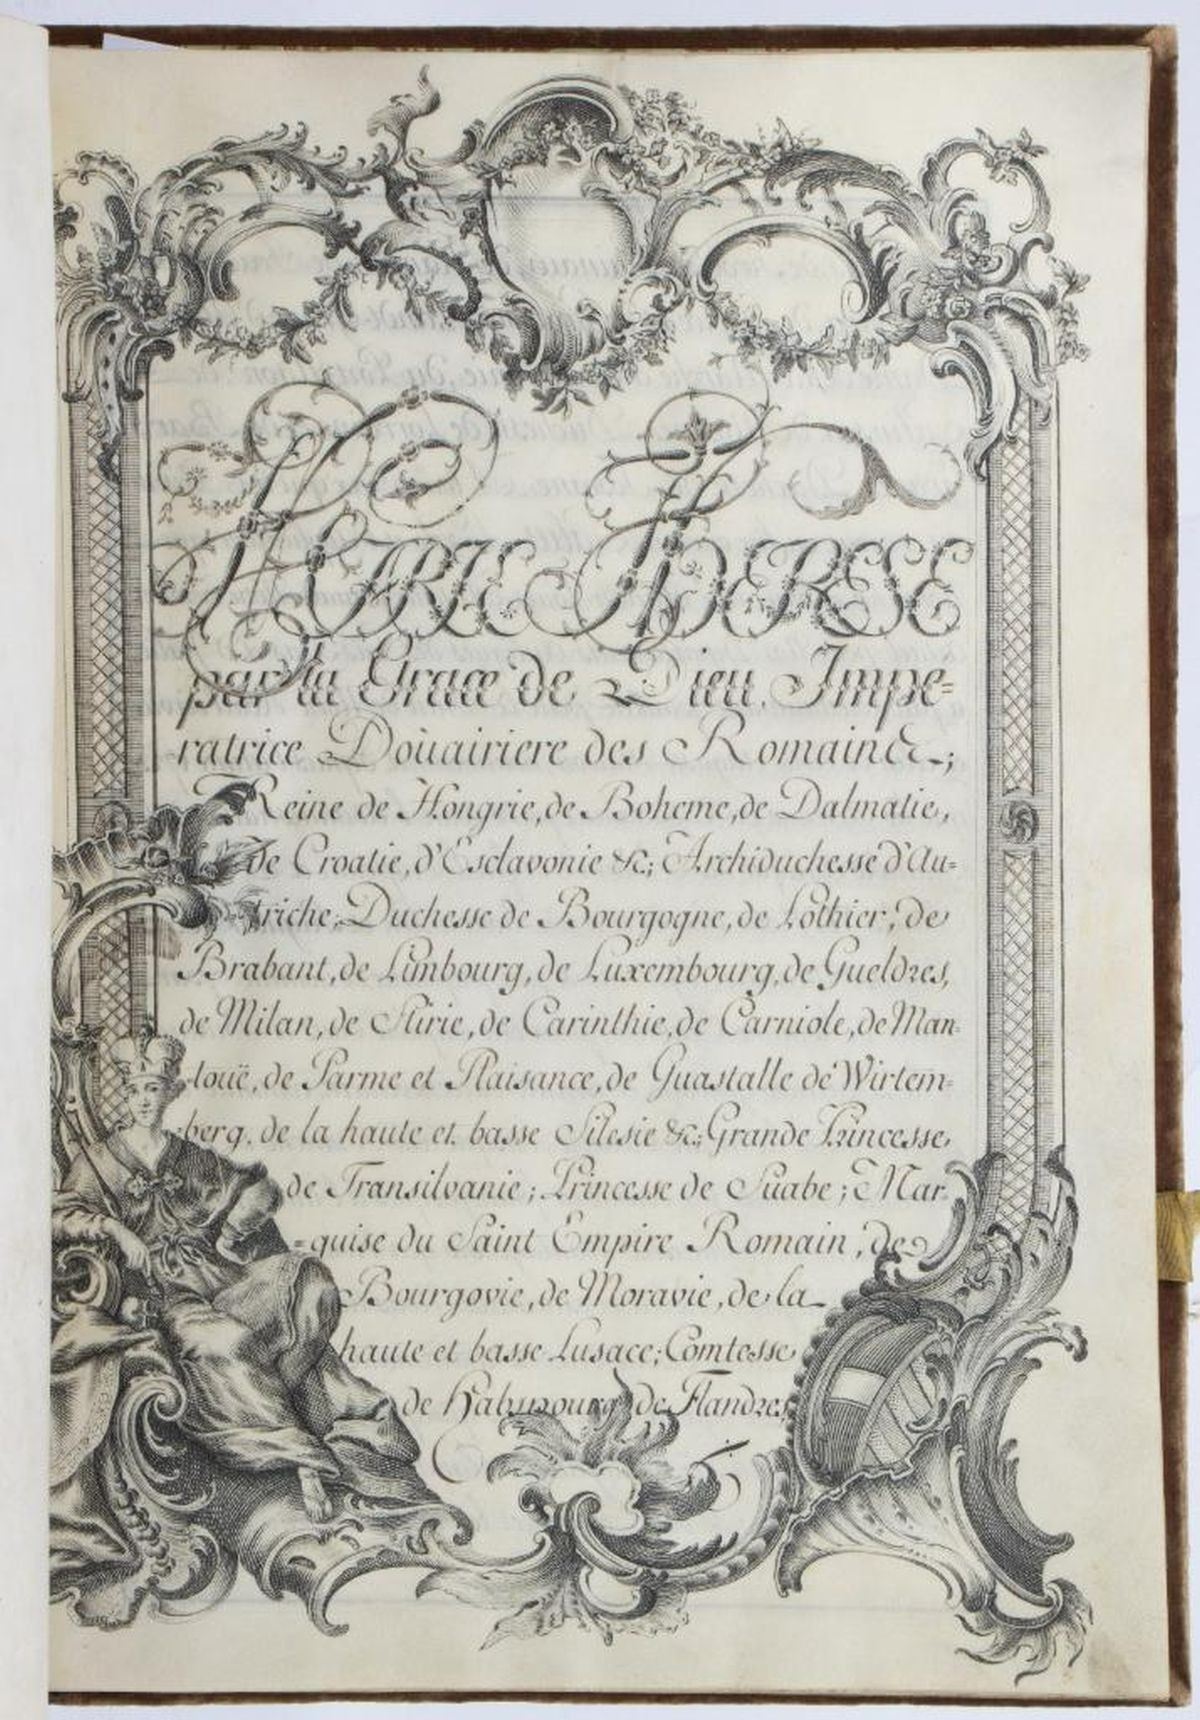 MARIE THERESE
par la Grace de Dieu, Impe=
ratrice Doüairiere des Romains &;
Reine de Hongrie, de Boheme, de Dalmatie,
de Croatie, d'Esclavonie &c; Archiduchesse d'Au=
triche; Duchesse de Bourgogne, de Lothier, de
Brabant, de Limbourg, de Luxembourg, de Gueldres,
de Milan, de Stirie, de Carinthie, de Carniole, de Man=
touë, de Parme et Plaisance, de Guastalle de Wirtem=
berg, de la haute et basse Silesie &c; Grande Princesse
de Transilvanie; Princesse de Suabe; Mar=
=quise du Saint Empire Romain, de
Bourgovie, de Moravie, de la
haute et basse Lusace; Comtesse
de Habspourg, de Flandres,